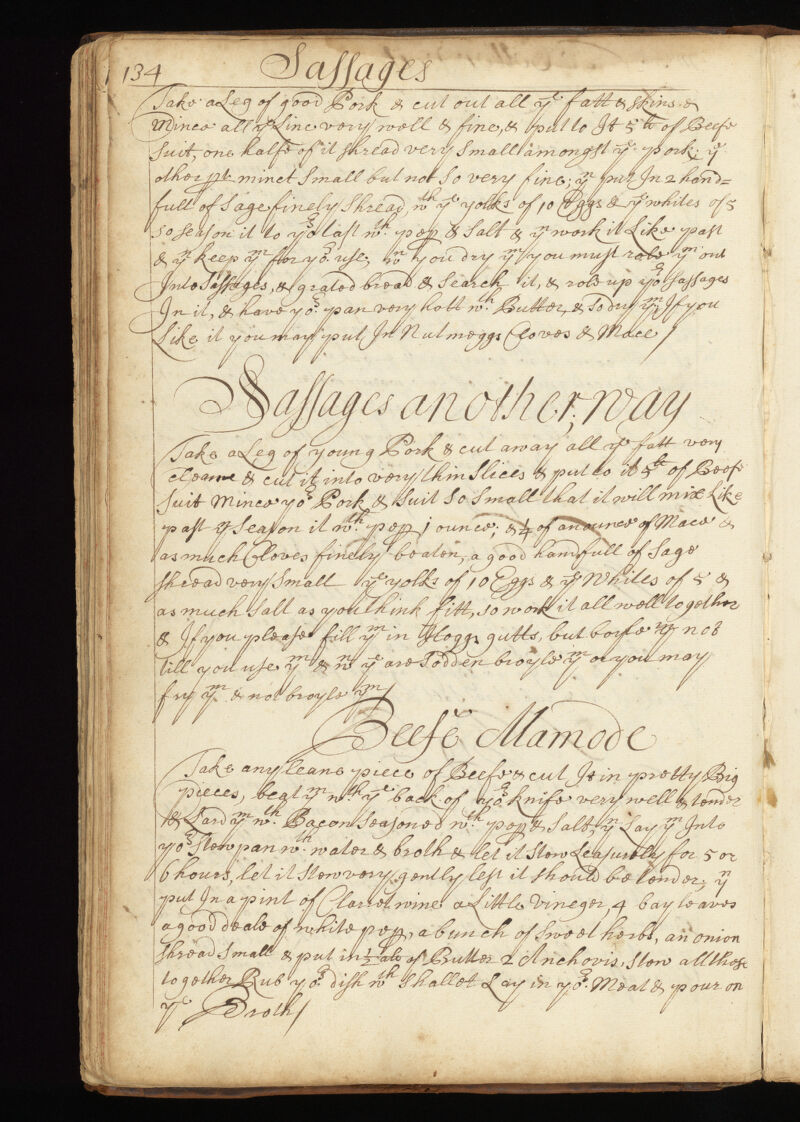 134 Sassages
Take a Leg of good Pork & cut out all yᵉ fatt & skins &
Mince all yᵉ Line very well & fine, & put to It 5ˡᵇ of Beefe
Suit, one halfe of it shread very Small amongst yᵉ pork; yⁿ
other pᵗ minct Small but not So very fine; yⁿ put In 2 hand=
full of Sage finely Shread wᵗʰ yᵉ yolks of 10 Eggs & yᵉ whites of 5
so season it to yoʳ last wᵗʰ pepp & Salt & yⁿ work it Like past
& yⁿ keep yᵐ for yoʳ use; wⁿ you dry yᵐ you must role yᵐ out
Into Sassages, & grated bread & Search it, & role up yoʳ Sassages
In it, & have yoʳ pan very hott wᵗʰ Butter, & So dry yᵐ; If you
Like it you may put In Nutmeggs Cloves & Mace /
Sassages another, way
Take a Leg of young Pork & cut away all yᵉ fatt very
cleane & cut it into very thin Slices & put to it 5ˡᵇ of Beefe
Suit Mince yoʳ Pork & Suit So Small that it will mix Like
past yⁿ Season it wᵗʰ pepp 1 ounce; & ¼ of an ounce of Mace &
as much Cloves finely beaten, a good handfull of Sage
Shread very Small yᵉ yolks of 10 Eggs & yᵉ Whites of 5 &
as much Salt as you think fitt, so work it all well together
& If you please fill yᵐ in Hoggs gutts, but boyle yᵐ not
till you use yᵐ & wⁿ yᵉ are Sodden broyle yᵐ or you may
fry yᵐ & not broyle yᵐ /
Beefe Alamode
Take any leane piece of Beefe & cut It in pretty Big
pieces, beat yᵐ wᵗʰ yᵉ back of yoʳ knife very well & tender
& Lard yᵐ wᵗʰ Bacon Seasoned wᵗʰ pepp & Salt, yⁿ Lay yᵐ Into
yoʳ Stew pan wᵗʰ water & broth & let it Stew Leasurely for 5 or
6 hours, let it Stew very gently lest it should be tender; yⁿ
put In a pint of Claret wine a Little Vineger, 4 bay leaves
a good deale of white pepp, a bunch of Sweet herbs, an onion
Shread Small & put in ½ of Butter 2 Anchovis, Stew all these
together Rub yoʳ dish wᵗʰ Shallot Lay in yoʳ Meat & pour on
yᵉ Broth /